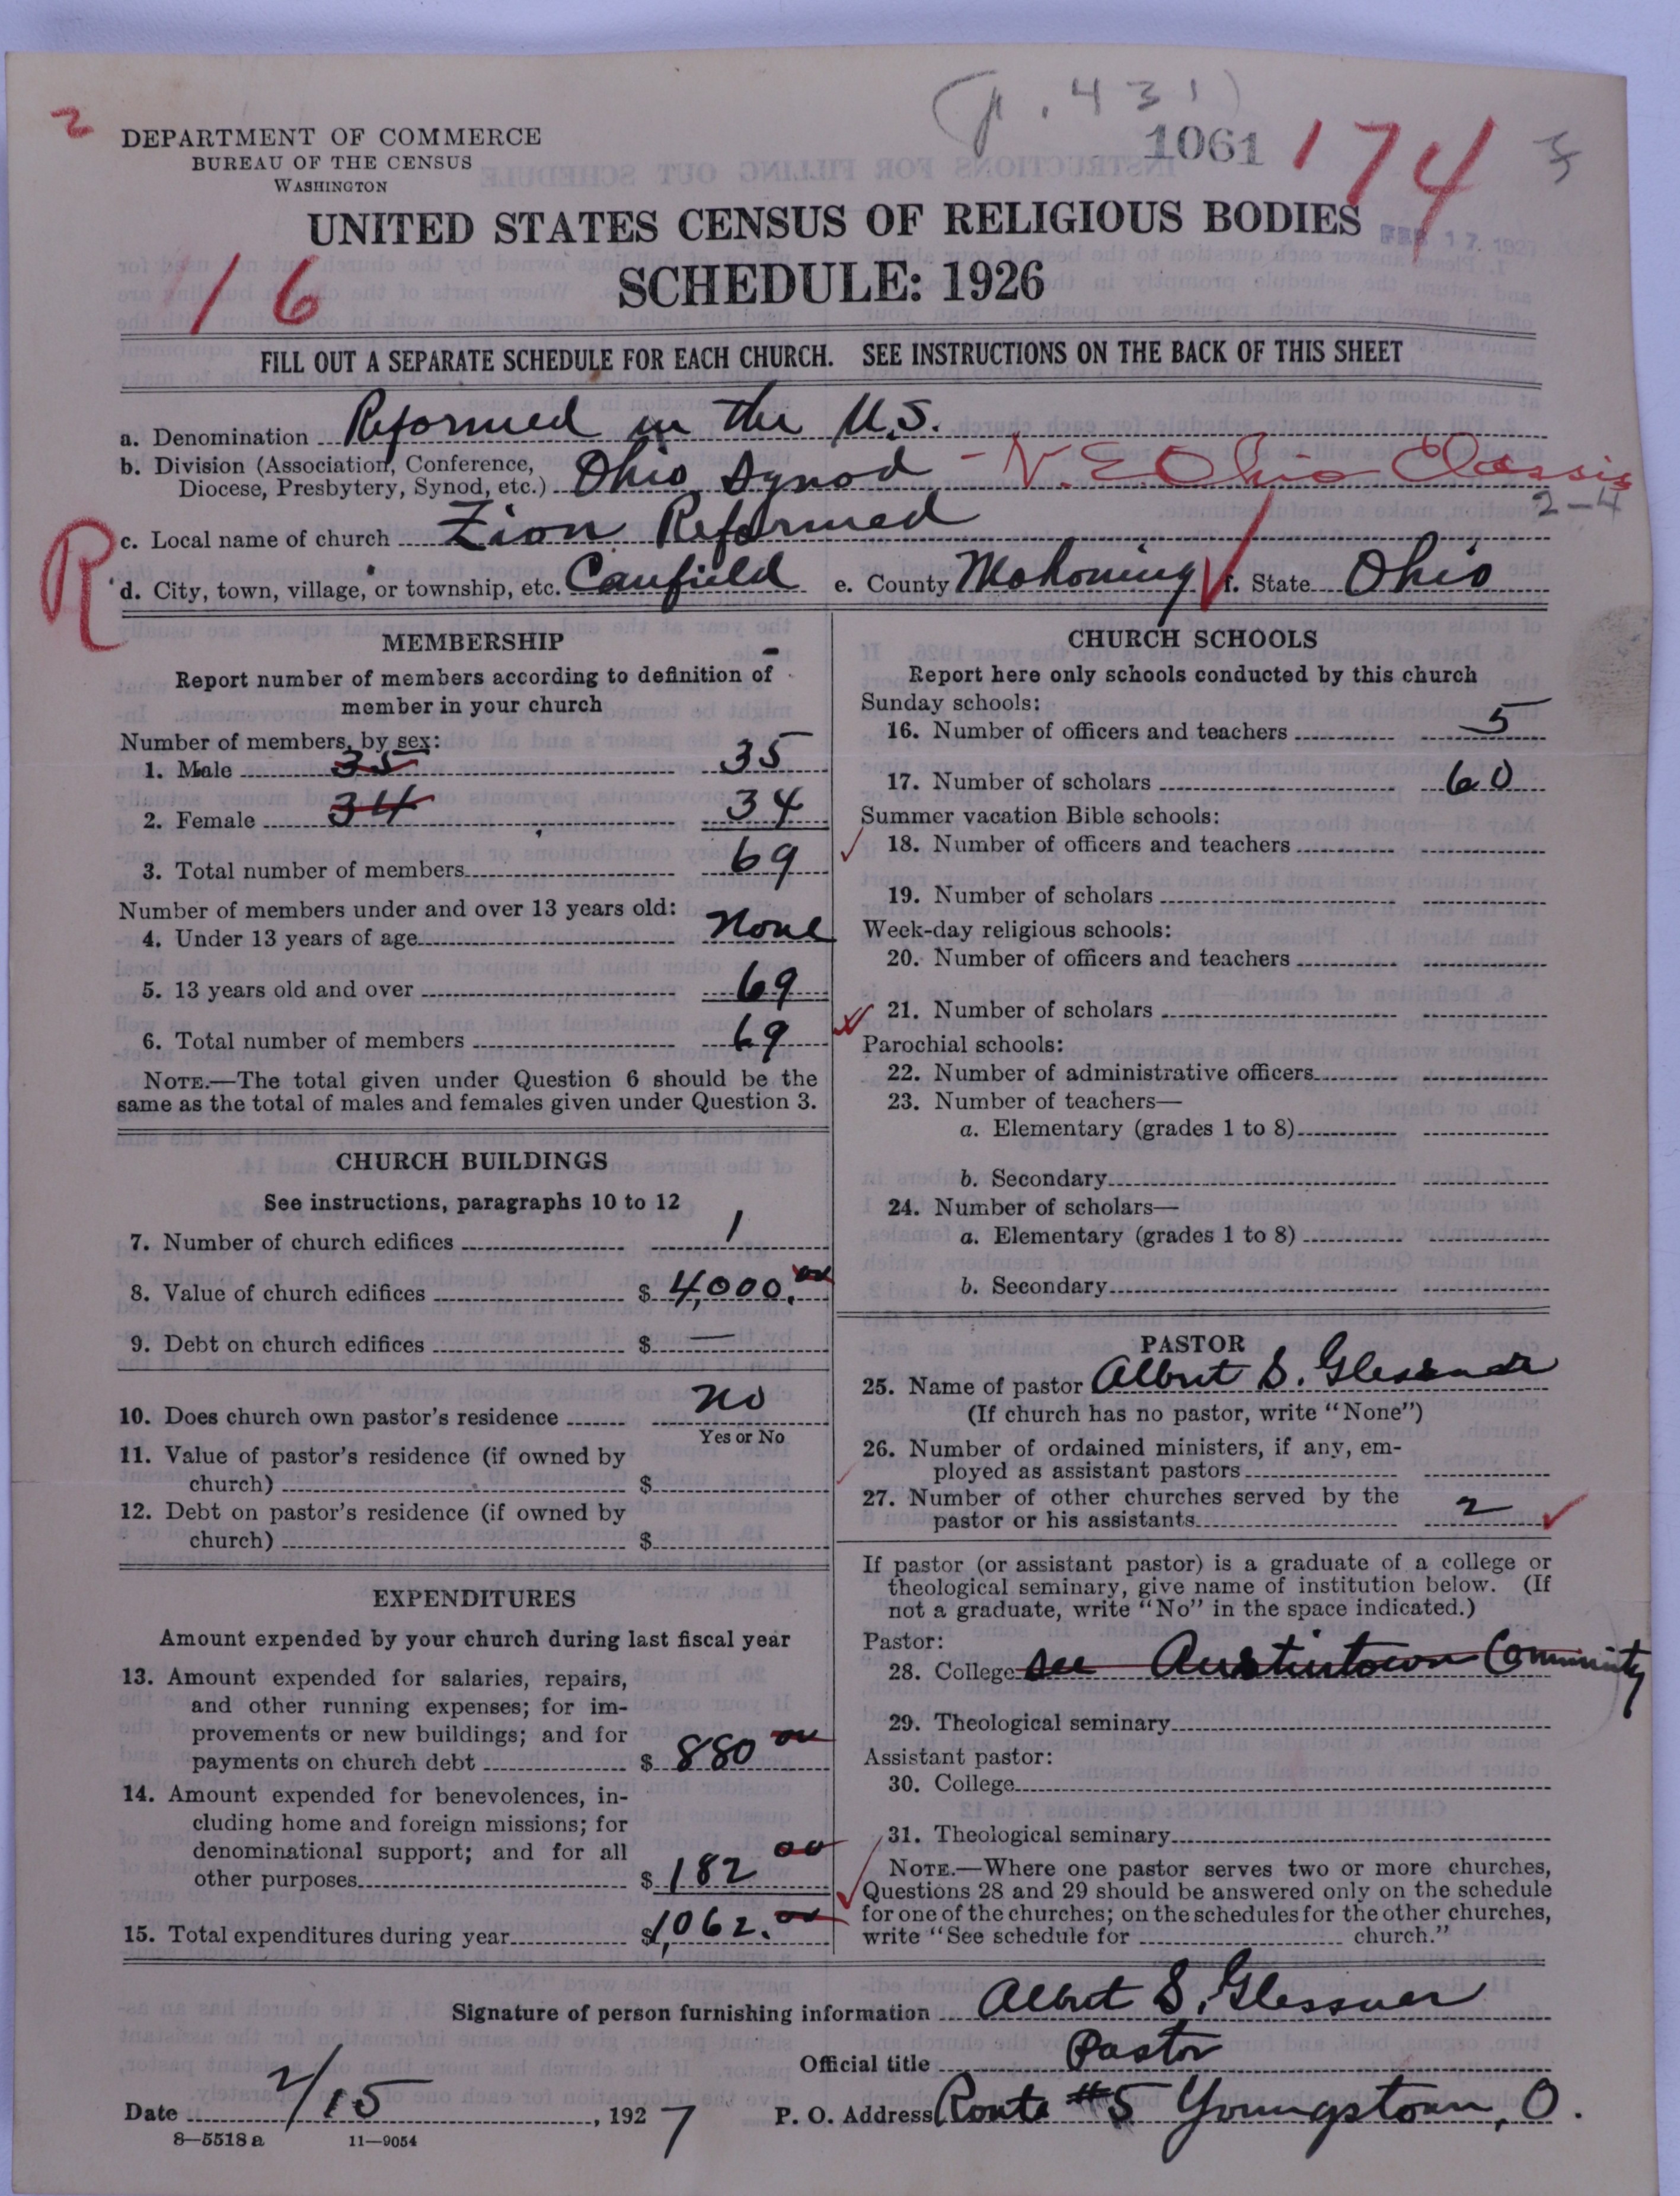 2
(p. 431)
DEPARTMENT OF COMMERCE
BUREAU OF THE CENSUS
WASHINGTON
1061
174
UNITED STATES CENSUS OF RELIGIOUS BODIES
FEB 17 1927
SCHEDULE: 1926
116
FILL OUT A SEPARATE SCHEDULE FOR EACH CHURCH. SEE INSTRUCTIONS ON THE BACK OF THIS SHEET
a. Denomination Reformed in the U.S.
b. Division (Association, Conference, Diocese, Presbytery, Synod, etc.) Ohio Synod - N.E. Ohio Classis
2-4
R
c. Local name of church Zion Reformed
d. City, town, village, or township, etc. Canfield e. County Mahoning f. State Ohio
MEMBERSHIP
Report number of members according to definition of
member in your church
Number of members, by sex:
1. Male 35 35
2. Female 34 34
3. Total number of members 69
Number of members under and over 13 years old:
4. Under 13 years of age None
5. 13 years old and over 69
6. Total number of members 69
NOTE.—The total given under Question 6 should be the
same as the total of males and females given under Question 3.
CHURCH BUILDINGS
See instructions, paragraphs 10 to 12
7. Number of church edifices 1
8. Value of church edifices $ 4,000.00
9. Debt on church edifices $ —
10. Does church own pastor's residence No
Yes or No
11. Value of pastor's residence (if owned by
church) $
12. Debt on pastor's residence (if owned by
church) $
EXPENDITURES
Amount expended by your church during last fiscal year
13. Amount expended for salaries, repairs,
and other running expenses; for im-
provements or new buildings; and for
payments on church debt $ 880 00
14. Amount expended for benevolences, in-
cluding home and foreign missions; for
denominational support; and for all
other purposes $ 182 00
15. Total expenditures during year $ 1,062.00
CHURCH SCHOOLS
Report here only schools conducted by this church
Sunday schools:
16. Number of officers and teachers 5
17. Number of scholars 60
Summer vacation Bible schools:
18. Number of officers and teachers
19. Number of scholars
Week-day religious schools:
20. Number of officers and teachers
21. Number of scholars
Parochial schools:
22. Number of administrative officers
23. Number of teachers—
a. Elementary (grades 1 to 8)
b. Secondary
24. Number of scholars—
a. Elementary (grades 1 to 8)
b. Secondary
PASTOR
25. Name of pastor Albert S. Glessner
(If church has no pastor, write "None")
26. Number of ordained ministers, if any, em-
ployed as assistant pastors
27. Number of other churches served by the
pastor or his assistants 2
If pastor (or assistant pastor) is a graduate of a college or
theological seminary, give name of institution below. (If
not a graduate, write "No" in the space indicated.)
Pastor:
28. College see Austintown Community
29. Theological seminary
Assistant pastor:
30. College
31. Theological seminary
NOTE.—Where one pastor serves two or more churches,
Questions 28 and 29 should be answered only on the schedule
for one of the churches; on the schedules for the other churches,
write "See schedule for church."
Signature of person furnishing information Albert S. Glessner
Official title Pastor
Date 2/15, 1927 P. O. Address Route #5 Youngstown, O.
8—5518 a 11—9054